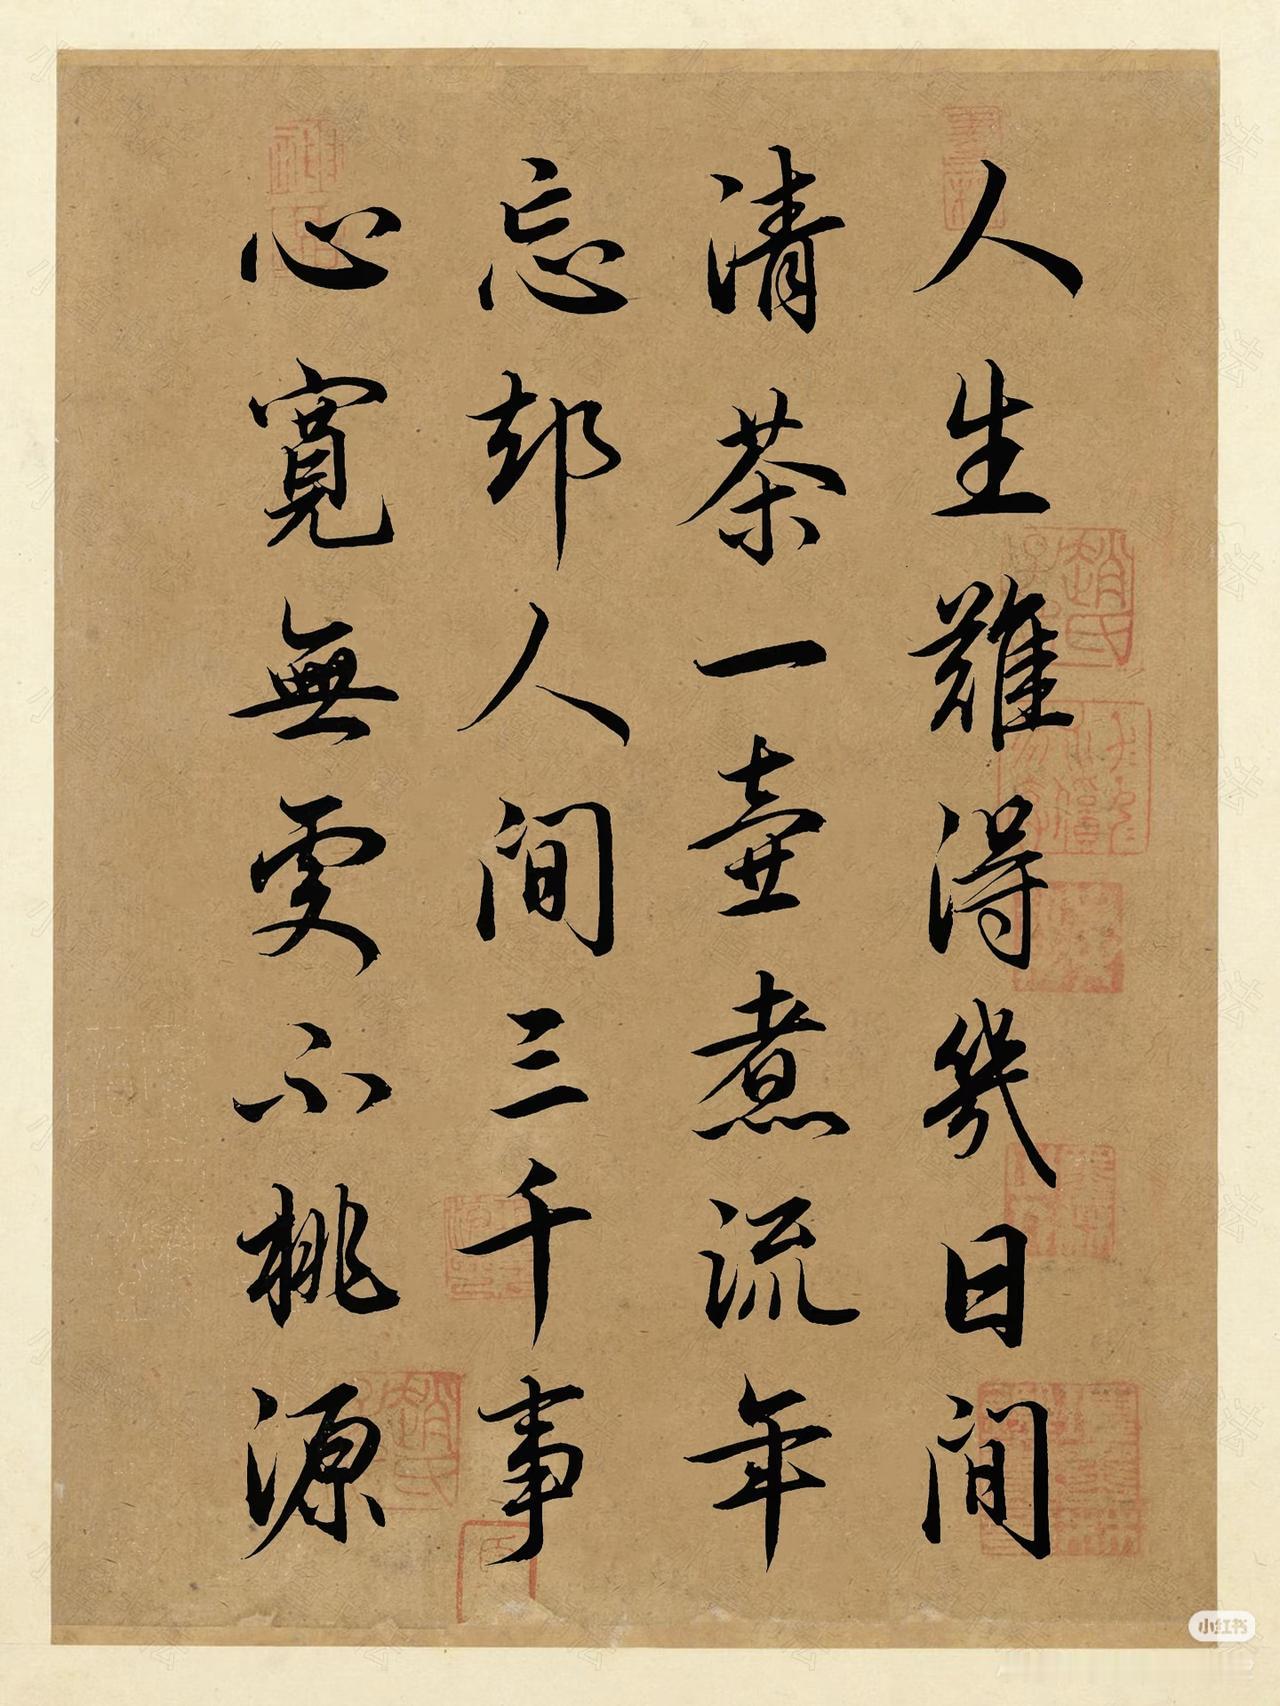 人生難得幾日間
清茶一壺煮流年
忘却人間三千事
心寬無處不桃源
趙氏
趙氏
小红书